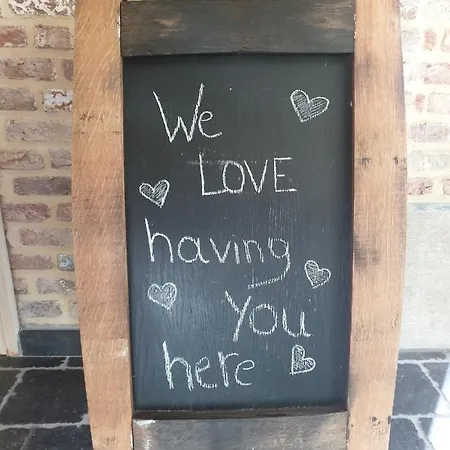 We
LOVE
having
You
here